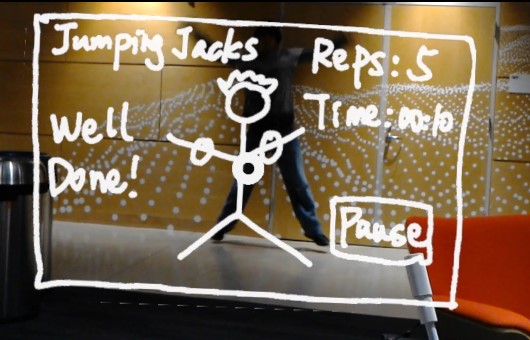 Jumping Jacks
Reps: 5
Time: 00:10
Well
Done!
Pause